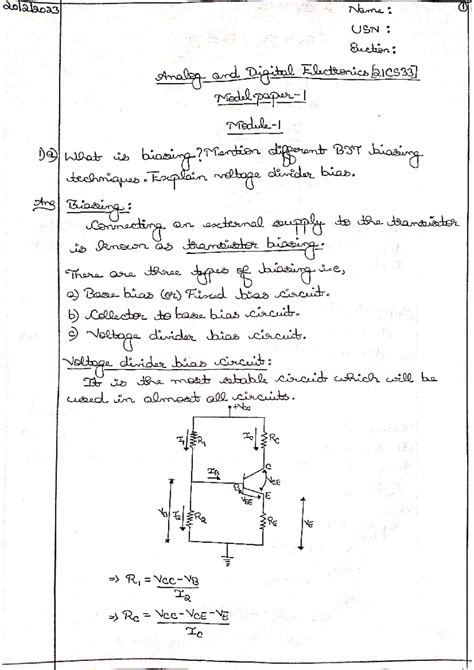 20/2/2023
①
Name :
USN :
Section :
Analog and Digital Electronics [21CS33]
Model paper-1
Module-1
1)a) What is biasing? Mention different BJT biasing
techniques. Explain voltage divider bias.
Ans Biasing :
Connecting an external supply to the transistor
is known as transistor biasing.
There are three types of biasing i.e,
a) Base bias (or) Fixed bias circuit.
b) Collector to base bias circuit.
c) Voltage divider bias circuit.
Voltage divider bias circuit :
It is the most stable circuit which will be
used in almost all circuits.
+VCC
I1 R1 IC RC
C
IB VCE
B E
VBE
VB I2 R2 RE VE
⇒ R1 = VCC-VB
I2
⇒ RC = VCC-VCE-VE
IC